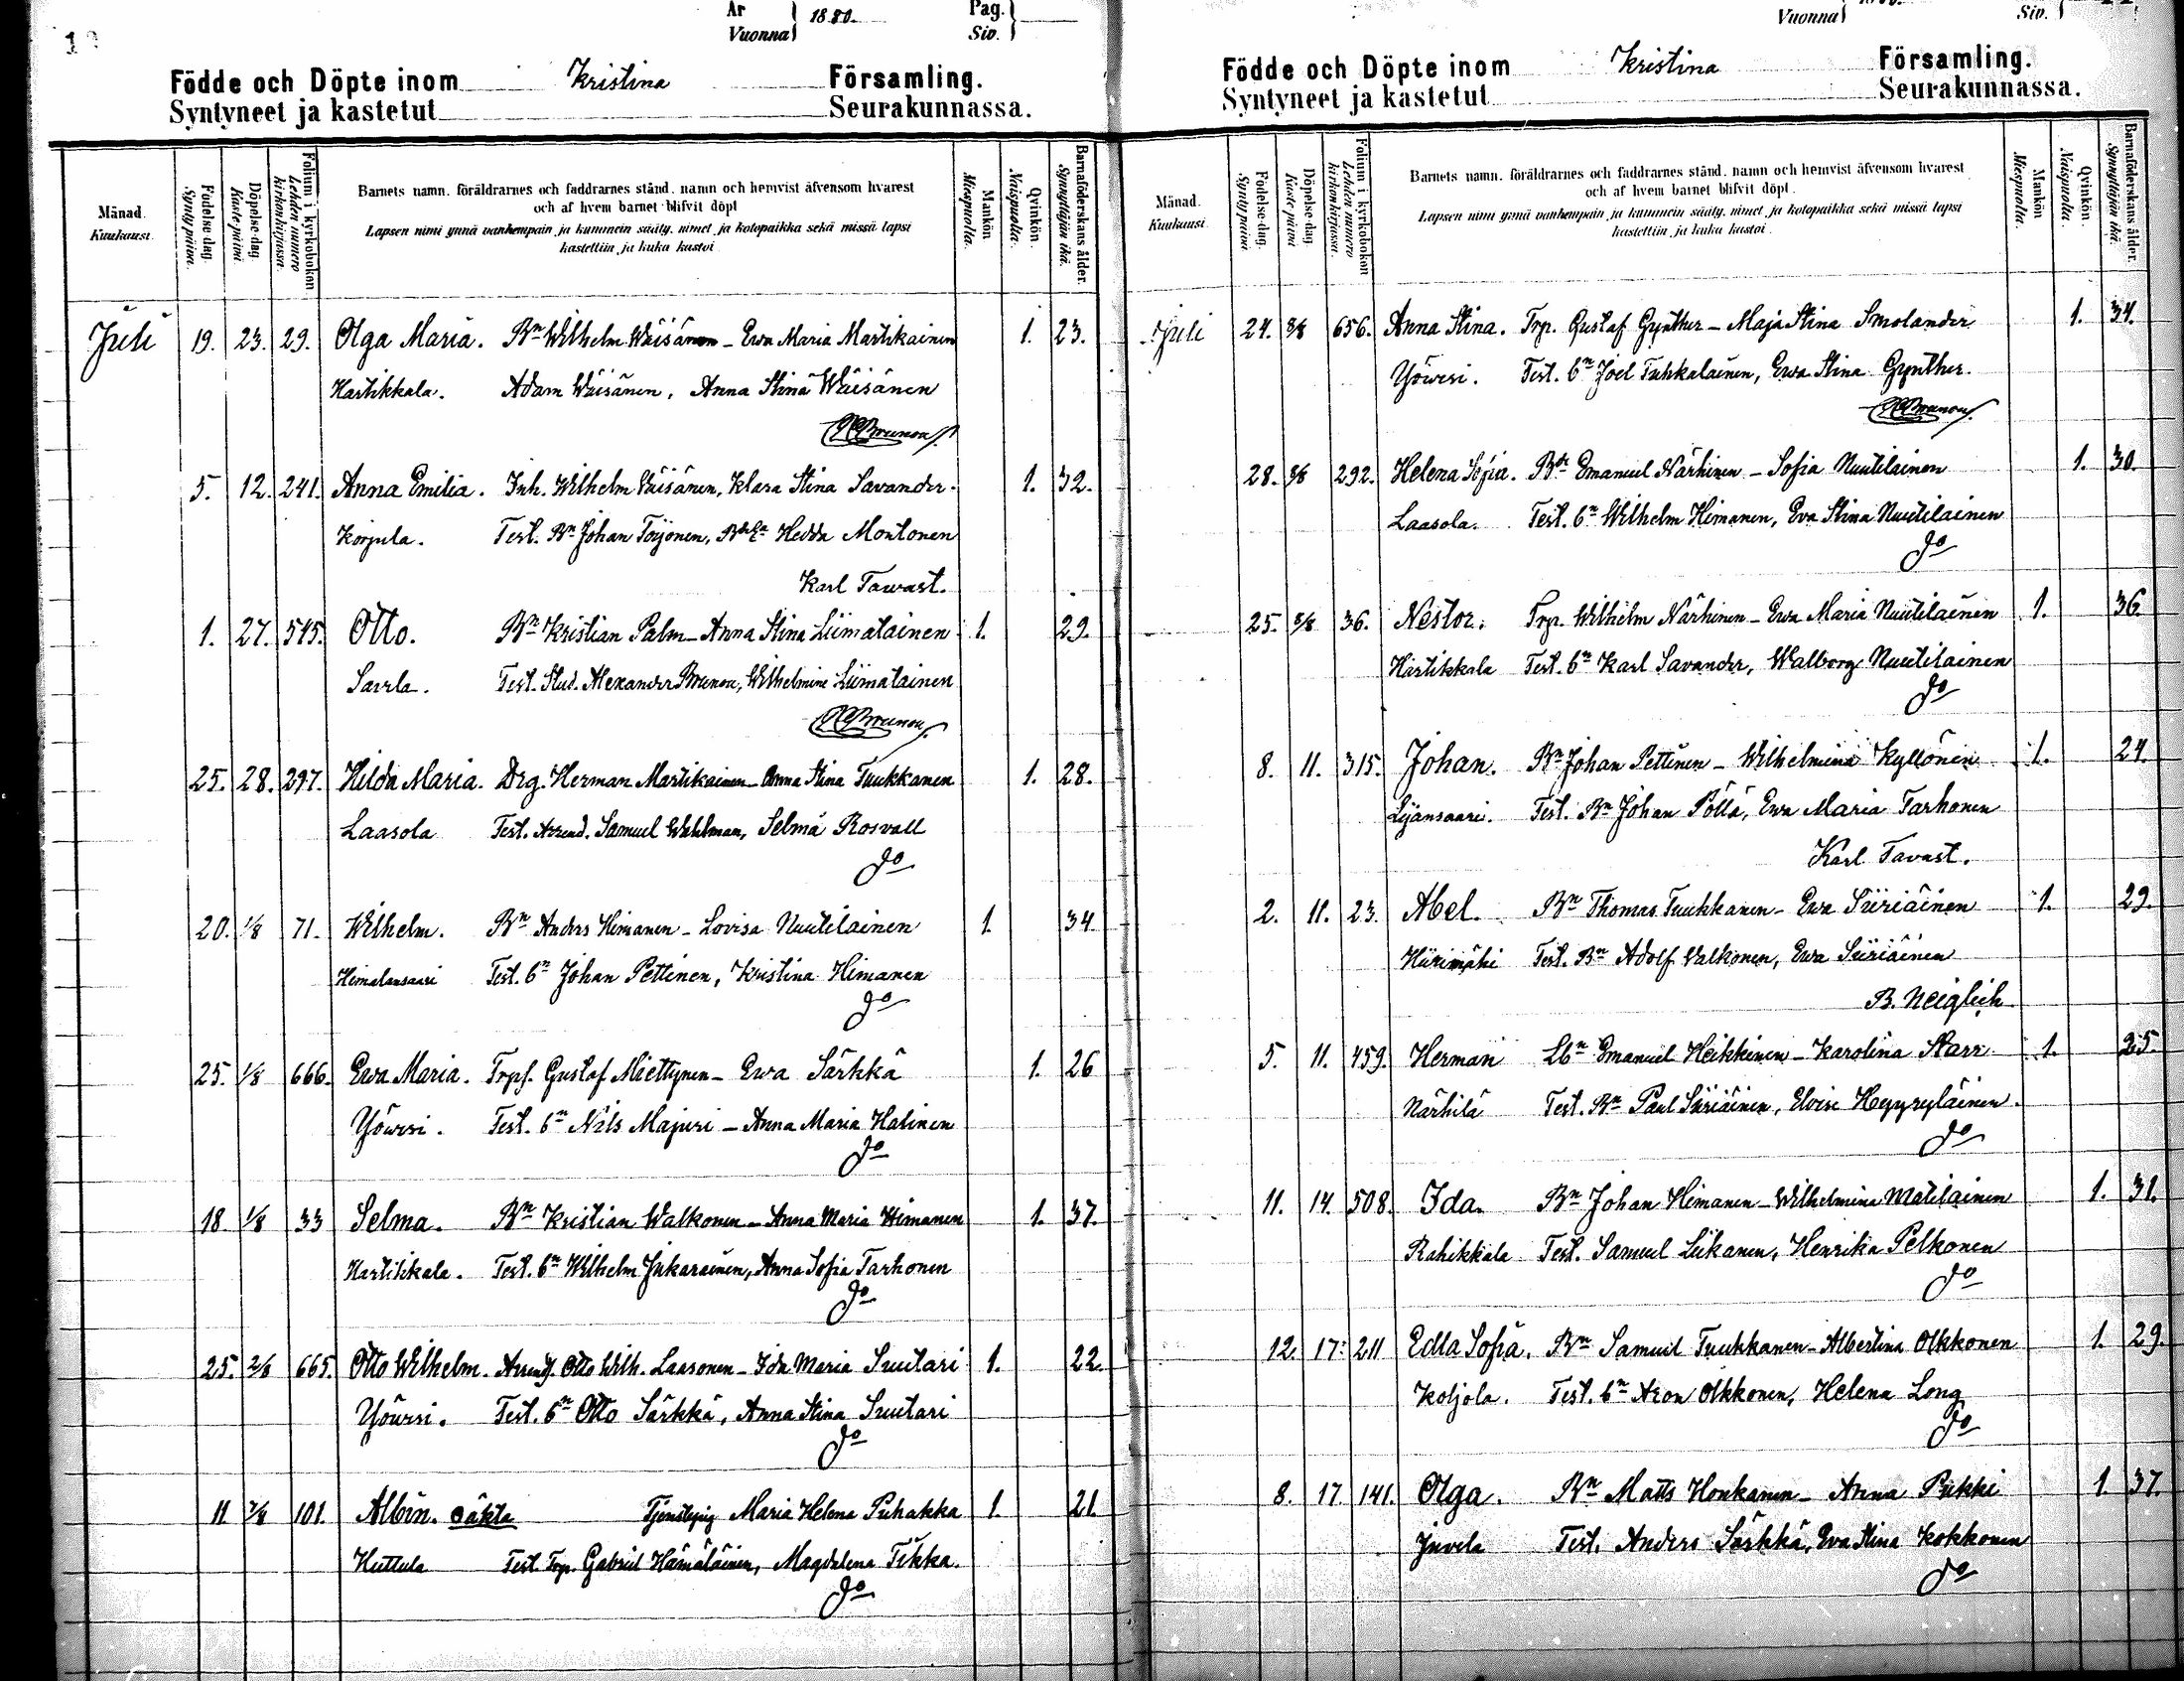 År
Vuonna } 1880.
Pag.
Siv.
Födde och Döpte inom Kristina Församling.
Syntyneet ja kastetut Seurakunnassa.
Månad. Kuukausi.
Födelse-dag. Synty päivä.
Döpelse-dag Kaste-päivä.
Folium i kyrkobokon Lehden numero kirkonkirjassa.
Barnets namn, föräldrarnes och faddrarnes stånd, namn och hemvist äfvensom hvarest
och af hvem barnet blifvit döpt
Lapsen nimi ynnä vanhempain ja kummein sääty, nimet ja kotopaikka sekä missä lapsi
kastettiin ja kuka kastoi.
Mankön Miespuolia.
Qvinkön. Naispuolia.
Barnaföderskans ålder. Synnyttäjän ikä.
Juli 19. 23. 29. Olga Maria. Bn Wilhelm Wäisänen - Ewa Maria Martikainen 1. 23.
Hartikkala. Adam Wäisänen, Anna Stina Wäisänen
Brunou
5. 12. 241. Anna Emilia. Inh. Wilhelm Väisänen, Klara Stina Savander. 1. 32.
Korpula. Test. Bn Johan Toijonen, Hedda Montonen
Karl Tawast.
1. 27. 545. Otto. Bn Kristian Palm - Anna Stina Liimatainen 1. 29.
Savela. Test. Stud. Alexander Brunou, Wilhelmine Liimatainen
Brunou
25. 28. 297. Hilda Maria. Drg. Herman Martikainen - Anna Stina Tuukkanen 1. 28.
Laasola Test. Arrend. Samuel Wahlman, Selma Rosvall
do
20. 1/8 71. Wilhelm. Bn Anders Himanen - Lovisa Nuutilainen 1. 34.
Himalansaari Test. 6n Johan Pettinen, Kristina Himanen
do
25. 1/8 666. Ewa Maria. Trpf. Gustaf Miettynen - Ewa Särkkä 1. 26
Yöwesi. Test. 6n Nils Majuri - Anna Maria Halinen
do
18. 1/8 33 Selma. Bn Kristian Walkonen - Anna Maria Himanen 1. 37.
Hartikkala. Test. 6n Wilhelm Jukarainen, Anna Sofia Tarhonen
do
25. 2/8 665. Otto Wilhelm. Arrend. Otto Wilh. Laasonen - Ida Maria Suutari 1. 22.
Yöwesi. Test. 6n Otto Särkkä, Anna Stina Suutari
do
11. 7/8 101. Albin. oäkta Tjenstepig Maria Helena Puhakka 1. 21.
Huttula Test. Trp. Gabriel Hämäläinen, Magdalena Tikka.
do
Vuonna
Siv.
Födde och Döpte inom Kristina Församling.
Syntyneet ja kastetut Seurakunnassa.
Månad. Kuukausi.
Födelse-dag. Synty päivä
Döpelse dag Kaste päivä
Folium i kyrkobokon Lehden numero kirkonkirjassa.
Barnets namn, föräldrarnes och faddrarnes stånd, namn och hemvist äfvensom hvarest
och af hvem barnet blifvit döpt.
Lapsen nimi ynnä vanhempain ja kummein sääty, nimet ja kotopaikka sekä missä lapsi
kastettiin ja kuka kastoi.
Mankön Miespuolia.
Qvinkön. Naispuolia.
Barnaföderskans ålder. Synnyttäjän ikä.
Juli 24. 8/8 656. Anna Stina. Trp. Gustaf Gynther - Maja Stina Smolander 1. 34.
Yöwesi. Test. 6n Joel Tuhkalainen, Ewa Stina Gynther.
Brunou
28. 8/8 292. Helena Sofia. Emanuel Närhinen - Sofia Nuutilainen 1. 30.
Laasola. Test. 6n Wilhelm Himanen, Eva Stina Nuutilainen
do
25. 8/8 36. Nestor. Trp. Wilhelm Närhinen - Ewa Maria Nuutilainen 1. 36
Hartikkala Test. 6n Karl Savander, Walborg Nuutilainen
do
8. 11. 315. Johan. Bn Johan Pettinen - Wilhelmina Kyllönen 1. 24.
Test. Bn Johan Pöllä, Ewa Maria Tarhonen
Karl Tavast.
2. 11. 23. Abel. Bn Thomas Tuukkanen - Ewa Siiriäinen 1. 29.
Hiirimäki Test. Bn Adolf Valkonen, Ewa Siiriäinen
B. Neiglick
5. 11. 459. Herman Lbn Emanuel Heikkinen - Karolina Starr 1. 25.
Närhilä Test. Bn Paul Siiriäinen, Elvire Heyryläinen.
do
11. 14. 508. Ida. Bn Johan Himanen - Wilhelmina Matilainen 1. 31.
Rahikkala Test. Samuel Liikanen, Henrika Pelkonen
do
12. 17. 211 Edla Sofia. Bn Samuel Tuukkanen - Albertina Olkkonen 1. 29.
Koljola. Test. 6n Aron Olkkonen, Helena Long
do
8. 17 141. Olga. Bn Matts Honkanen - Anna Pukki 1. 37.
Juvela Test. Anders Särkkä, Eva Stina Kokkonen
do